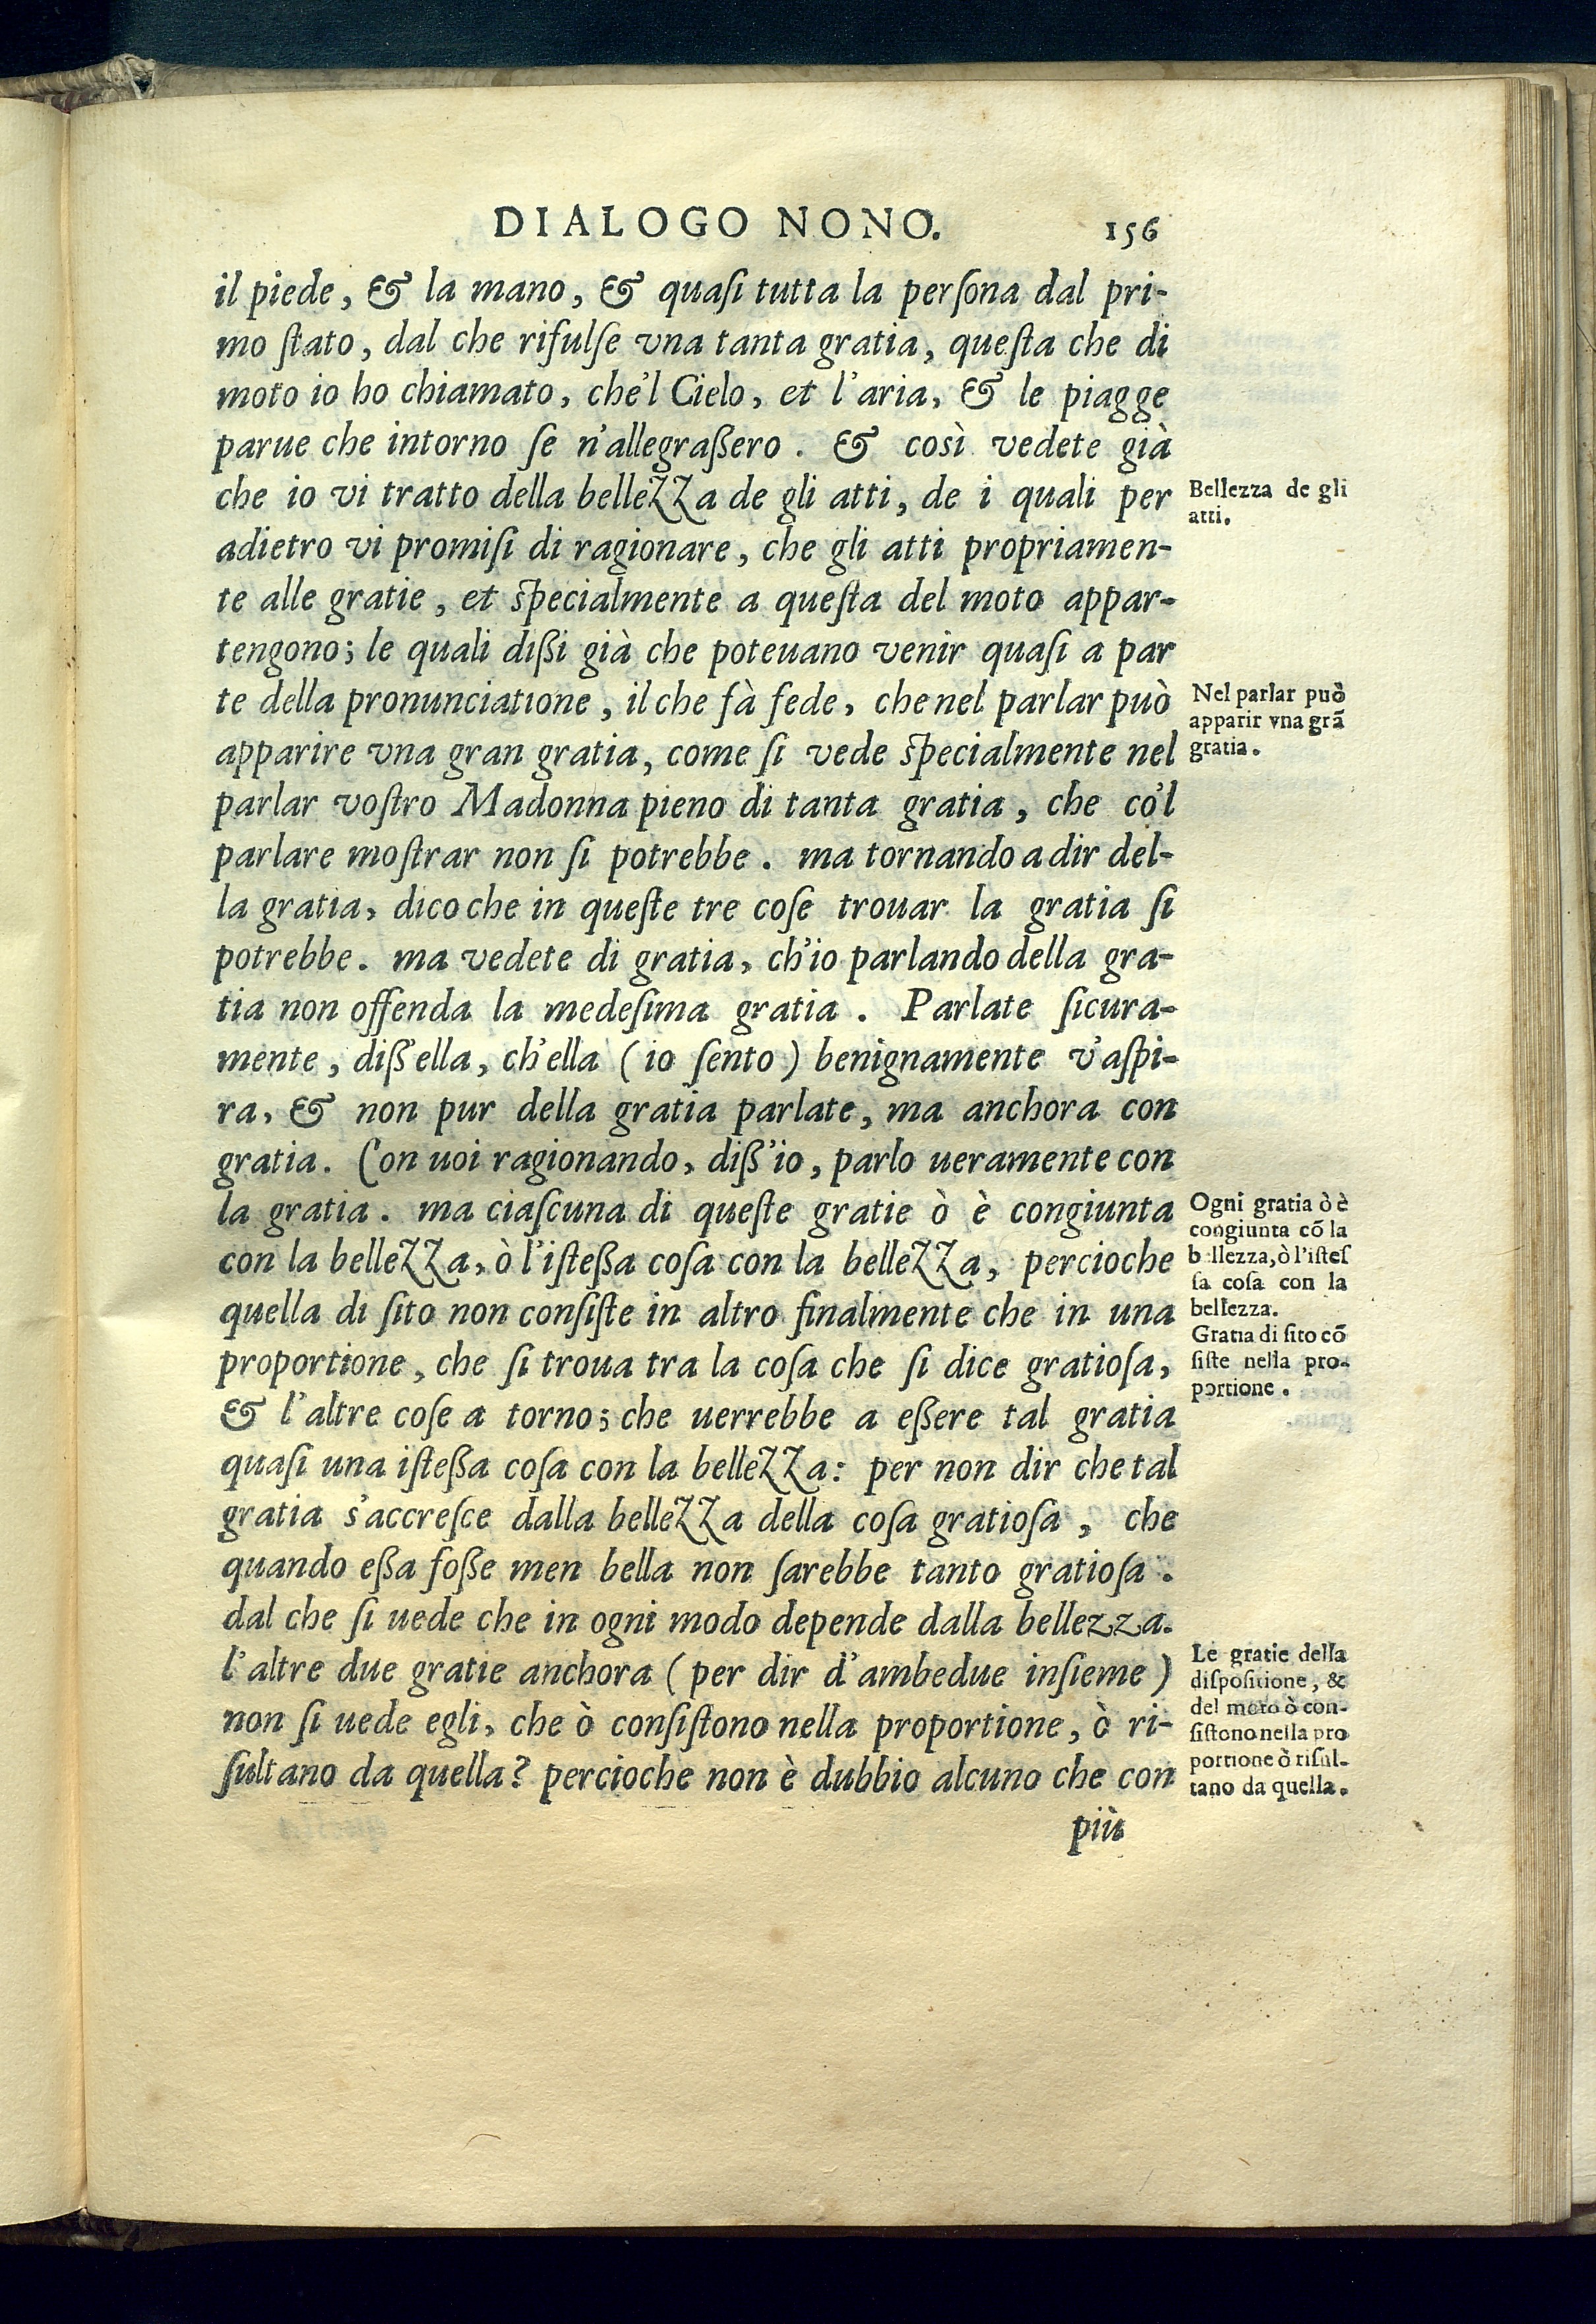 DIALOGO NONO. 156
il piede, & la mano, & quaſi tutta la perſona dal pri-
mo ſtato, dal che rifulſe vna tanta gratia, queſta che di
moto io ho chiamato, che'l Cielo, et l'aria, & le piagge
parue che intorno ſe n'allegraßero. & così vedete già
che io vi tratto della bellezza de gli atti, de i quali per
adietro vi promiſi di ragionare, che gli atti propriamen-
te alle gratie, et ſpecialmente a queſta del moto appar-
tengono; le quali dißi già che poteuano venir quaſi a par
te della pronunciatione, il che fà fede, che nel parlar può
apparire vna gran gratia, come ſi vede ſpecialmente nel
parlar voſtro Madonna pieno di tanta gratia, che co'l
parlare moſtrar non ſi potrebbe. ma tornando a dir del-
la gratia, dico che in queſte tre coſe trouar la gratia ſi
potrebbe. ma vedete di gratia, ch'io parlando della gra-
tia non offenda la medeſima gratia. Parlate ſicura-
mente, diß'ella, ch'ella (io ſento) benignamente v'aſpi-
ra, & non pur della gratia parlate, ma anchora con
gratia. Con uoi ragionando, diß'io, parlo ueramente con
la gratia. ma ciaſcuna di queſte gratie ò è congiunta
con la bellezza, ò l'iſteßa coſa con la bellezza, percioche
quella di ſito non conſiſte in altro finalmente che in una
proportione, che ſi troua tra la coſa che ſi dice gratioſa,
& l'altre coſe a torno; che uerrebbe a eßere tal gratia
quaſi una iſteßa coſa con la bellezza: per non dir che tal
gratia s'accreſce dalla bellezza della coſa gratioſa, che
quando eßa foße men bella non ſarebbe tanto gratioſa.
dal che ſi uede che in ogni modo depende dalla bellezza.
l'altre due gratie anchora (per dir d'ambedue inſieme)
non ſi uede egli, che ò conſiſtono nella proportione, ò ri-
ſultano da quella? percioche non è dubbio alcuno che con
più
Bellezza de gli
atti.
Nel parlar può
apparir vna grã
gratia.
Ogni gratia ò è
congiunta cõ la
b llezza, ò l'iſteſ
ſa coſa con la
bellezza.
Gratia di ſito cõ
ſiſte nella pro-
portione.
Le gratie della
diſpoſitione, &
del moto ò con-
ſiſtono nella pro
portione ò riſul-
tano da quella.